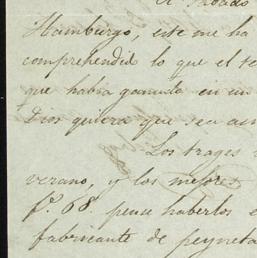 Hamburgo, este me ha
comprehendid lo que el se
que habia ganado en un
Dios quiera que sea asi
Los trages
verano, y los mejores
f.º 68. pense haberlos e
fabricante de peyneta